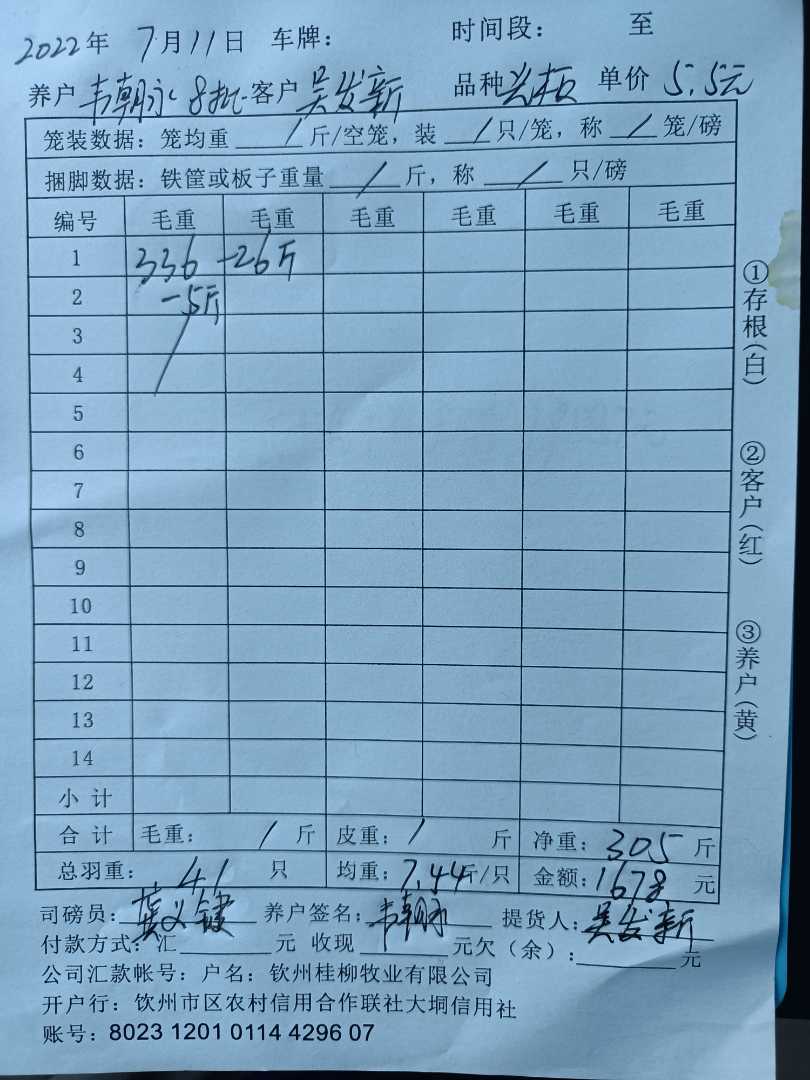 2022年 7月11日 车牌： 时间段： 至
养户 韦朝脉 8批 客户 吴发新 品种 单价 5.5元
笼装数据：笼均重 / 斤/空笼，装 / 只/笼，称 / 笼/磅
捆脚数据：铁筐或板子重量 / 斤，称 / 只/磅
编号 毛重 毛重 毛重 毛重 毛重 毛重
1 336 -26斤
2 -5斤
3
4
5
6
7
8
9
10
11
12
13
14
小计
合计 毛重： / 斤 皮重： / 斤 净重：305 斤
总羽重： 41 只 均重：7.44斤/只 金额：1678 元
司磅员： 养户签名：韦朝脉 提货人：吴发新
付款方式：汇 元 收现 元欠（余）： 元
公司汇款帐号：户名：钦州桂柳牧业有限公司
开户行：钦州市区农村信用合作联社大垌信用社
账号：8023 1201 0114 4296 07
①存根（白）
②客户（红）
③养户（黄）